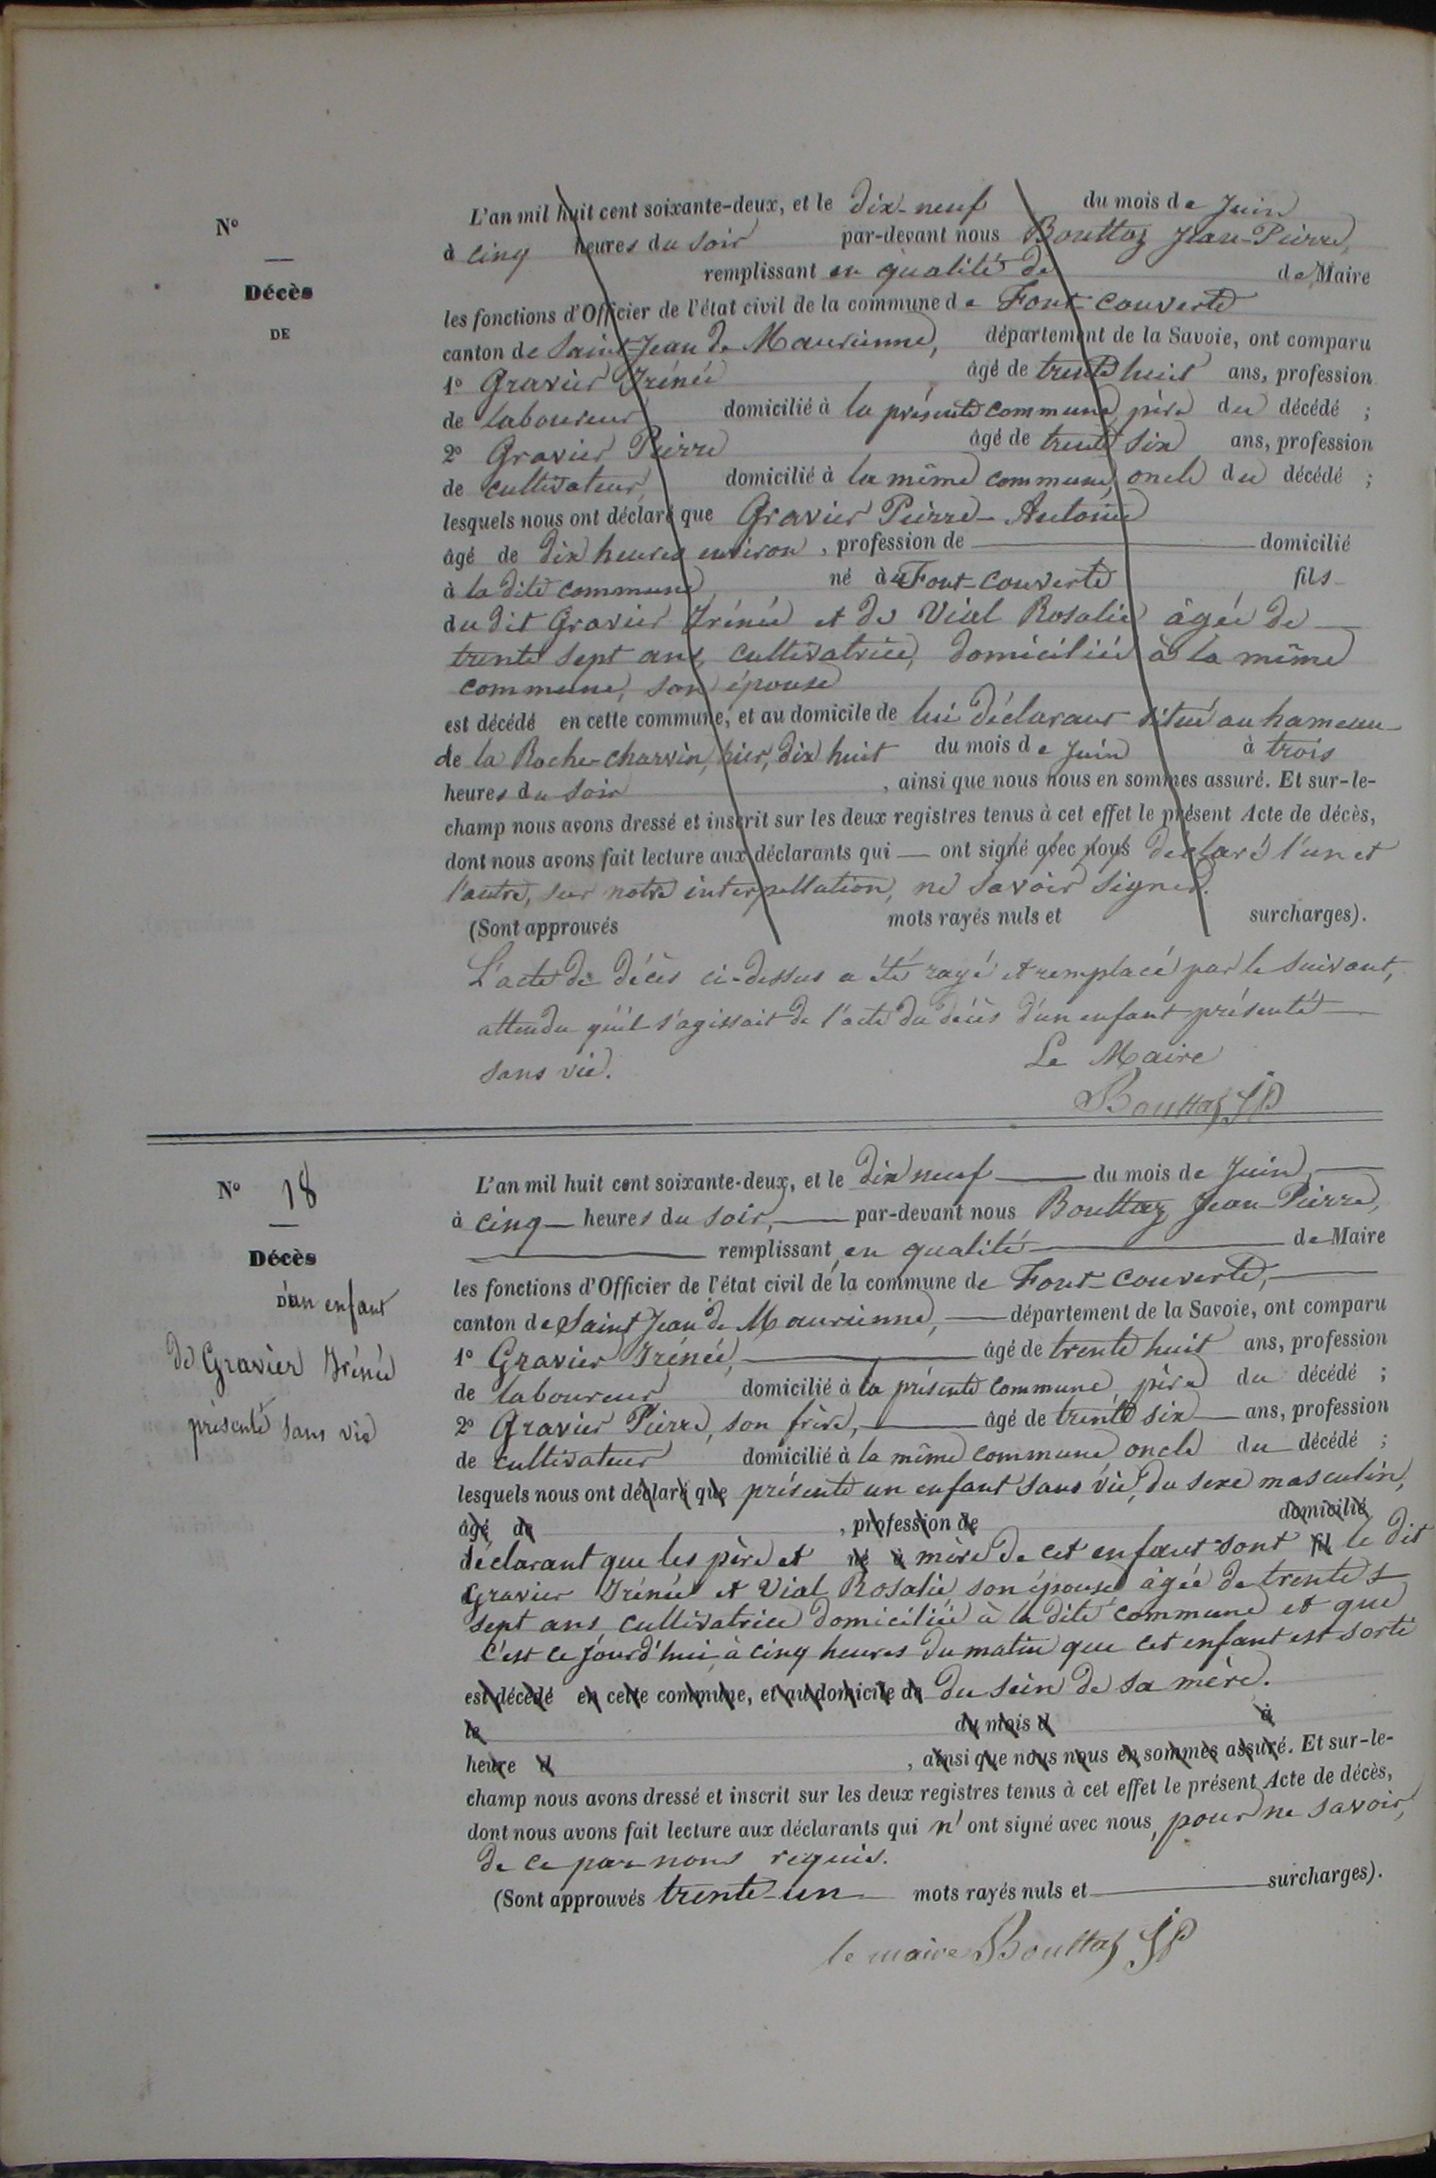 N°
Décès
DE
L'an mil huit cent soixante-deux, et le dix-neuf du mois de Juin
à cinq heures du soir par-devant nous Bouttaz Jean-Pierre,
remplissant en qualité de de Maire
les fonctions d'Officier de l'état civil de la commune de Font-couverte
canton de Saint-Jean de Maurienne, département de la Savoie, ont comparu
1° Gravier Irénée âgé de trente huit ans, profession
de laboureur domicilié à la présente commune, père du décédé ;
2° Gravier Pierre âgé de trente six ans, profession
de cultivateur, domicilié à la même commune, oncle du décédé ;
lesquels nous ont déclaré que Gravier Pierre-Antoine
âgé de dix heures environ, profession de domicilié
à la dite commune né à Font-couverte fils
du dit Gravier Irénée et de Vial Rosalie âgée de
trente sept ans, cultivatrice, domiciliée à la même
commune, son épouse
est décédé en cette commune, et au domicile de lui déclarant situé au hameau
de la Roche-charvin, hier, dix huit du mois de Juin à trois
heures du soir , ainsi que nous nous en sommes assuré. Et sur-le-
champ nous avons dressé et inscrit sur les deux registres tenus à cet effet le présent Acte de décès,
dont nous avons fait lecture aux déclarants qui — ont signé avec nous déclaré l'un et
l'autre, sur notre interpellation, ne savoir signer.
(Sont approuvés mots rayés nuls et surcharges).
L'acte de décès ci-dessus a été rayé et remplacé par le suivant,
attendu qu'il s'agissait de l'acte du décès d'un enfant présenté
sans vie. Le Maire
Bouttaz JP
N° 18
Décès
D'un enfant
de Gravier Irénée
présenté sans vie
L'an mil huit cent soixante-deux, et le dix neuf du mois de Juin
à cinq heures du soir, par-devant nous Bouttaz Jean-Pierre,
remplissant en qualité de Maire
les fonctions d'Officier de l'état civil de la commune de Font-couverte,
canton de Saint Jean de Maurienne, département de la Savoie, ont comparu
1° Gravier Irénée, âgé de trente huit ans, profession
de laboureur domicilié à la présente commune, père du décédé ;
2° Gravier Pierre, son frère, âgé de trente six ans, profession
de cultivateur domicilié à la même commune, oncle du décédé ;
lesquels nous ont déclaré que présenté un enfant sans vie, du sexe masculin,
âgé de , profession de domicilié
déclarant que les père et né à mère de cet enfant sont fil le dit
Gravier Irénée et Vial Rosalie son épouse âgée de trente
sept ans cultivatrice domiciliée à la dite commune et que
c'est ce jourd'hui à cinq heures du matin que cet enfant est sorti
est décédé en cette commune, et au domicile de du sein de sa mère.
le du mois d à
heure d , ainsi que nous nous en sommes assuré. Et sur-le-
champ nous avons dressé et inscrit sur les deux registres tenus à cet effet le présent Acte de décès,
dont nous avons fait lecture aux déclarants qui n'ont signé avec nous, pour ne savoir,
de ce par nous requis.
(Sont approuvés trente-un mots rayés nuls et surcharges).
le maire Bouttaz JP